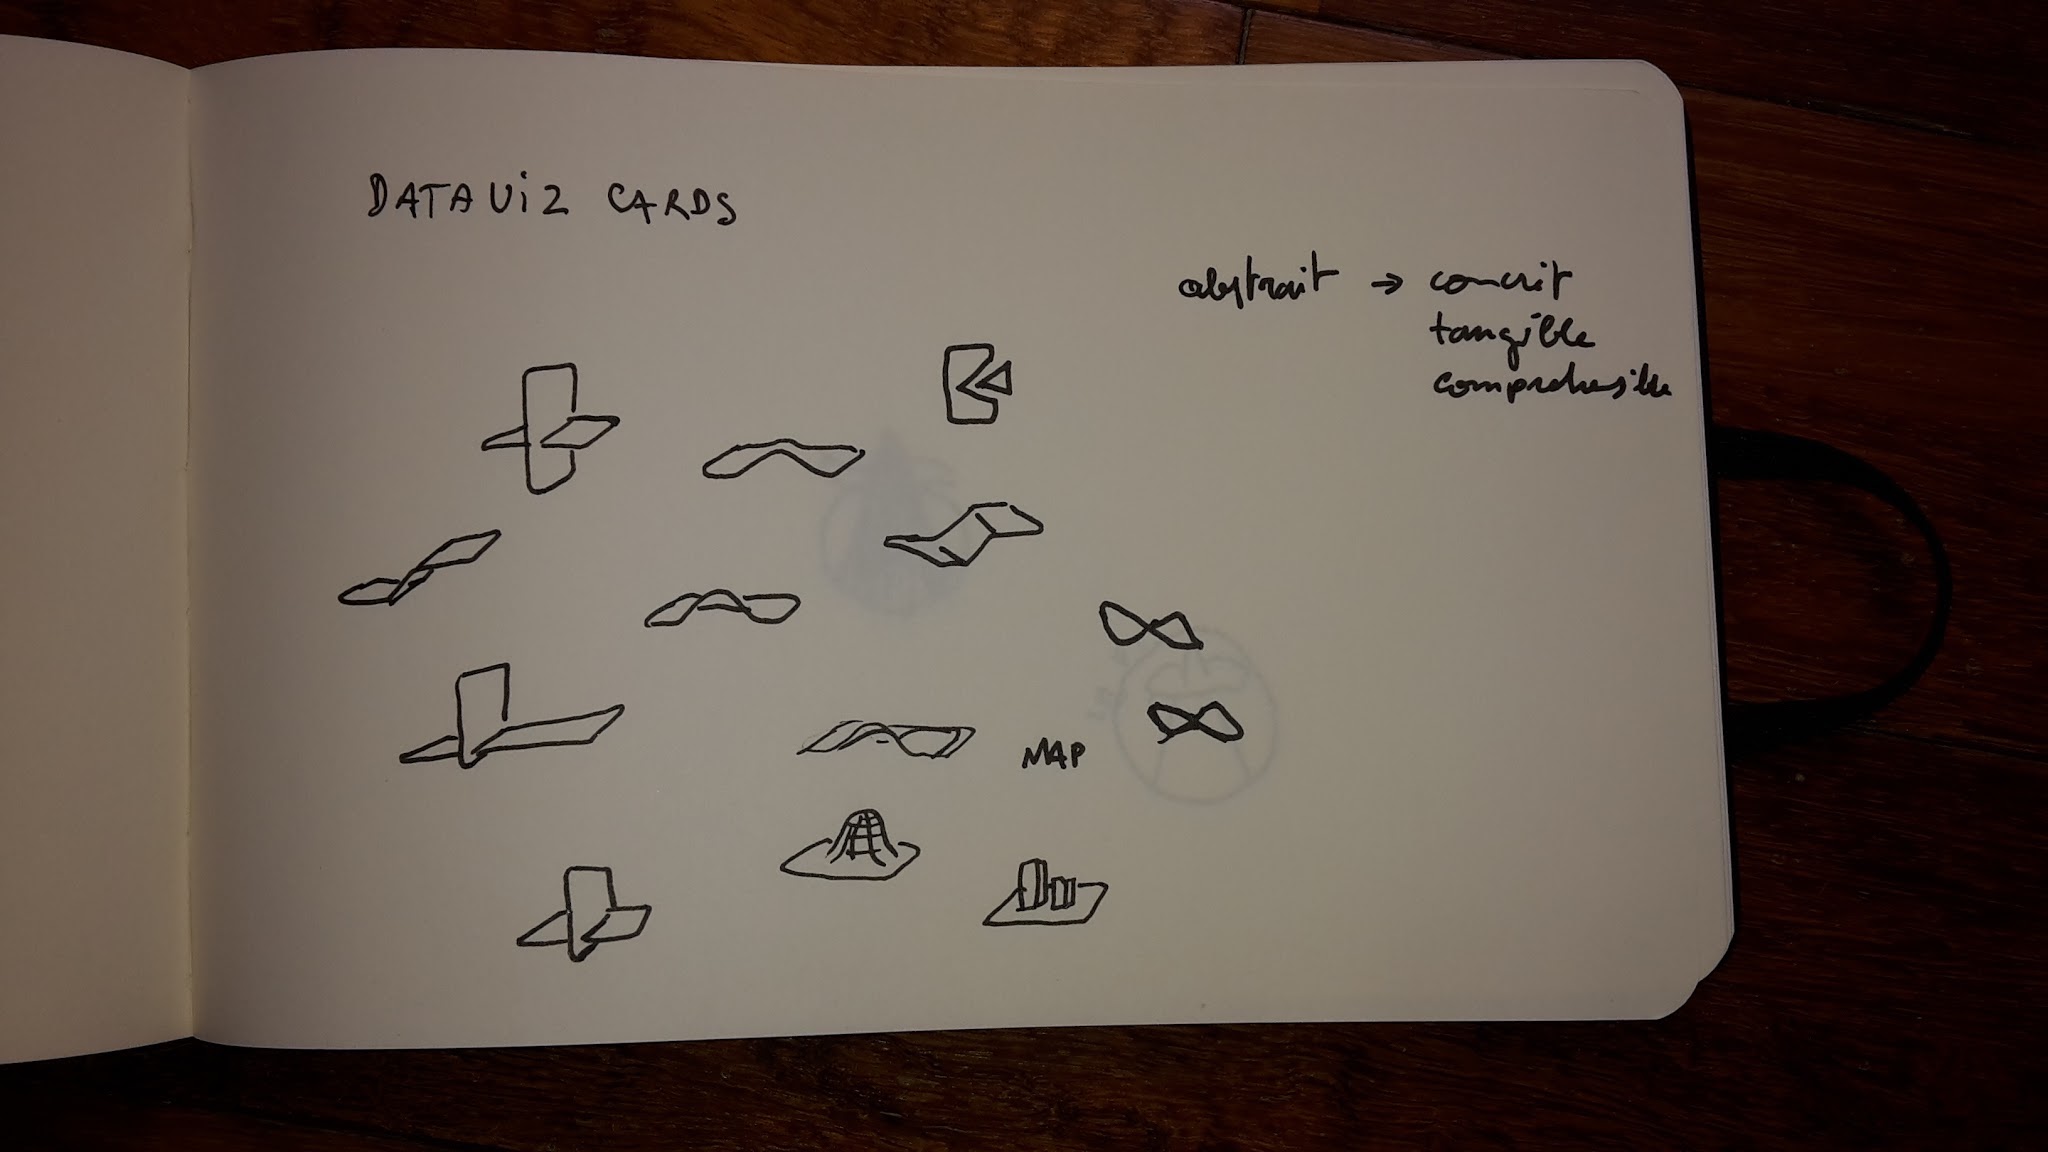 DATAViZ CARDS
abstrait → concrit
tangible
comprehensible
MAP